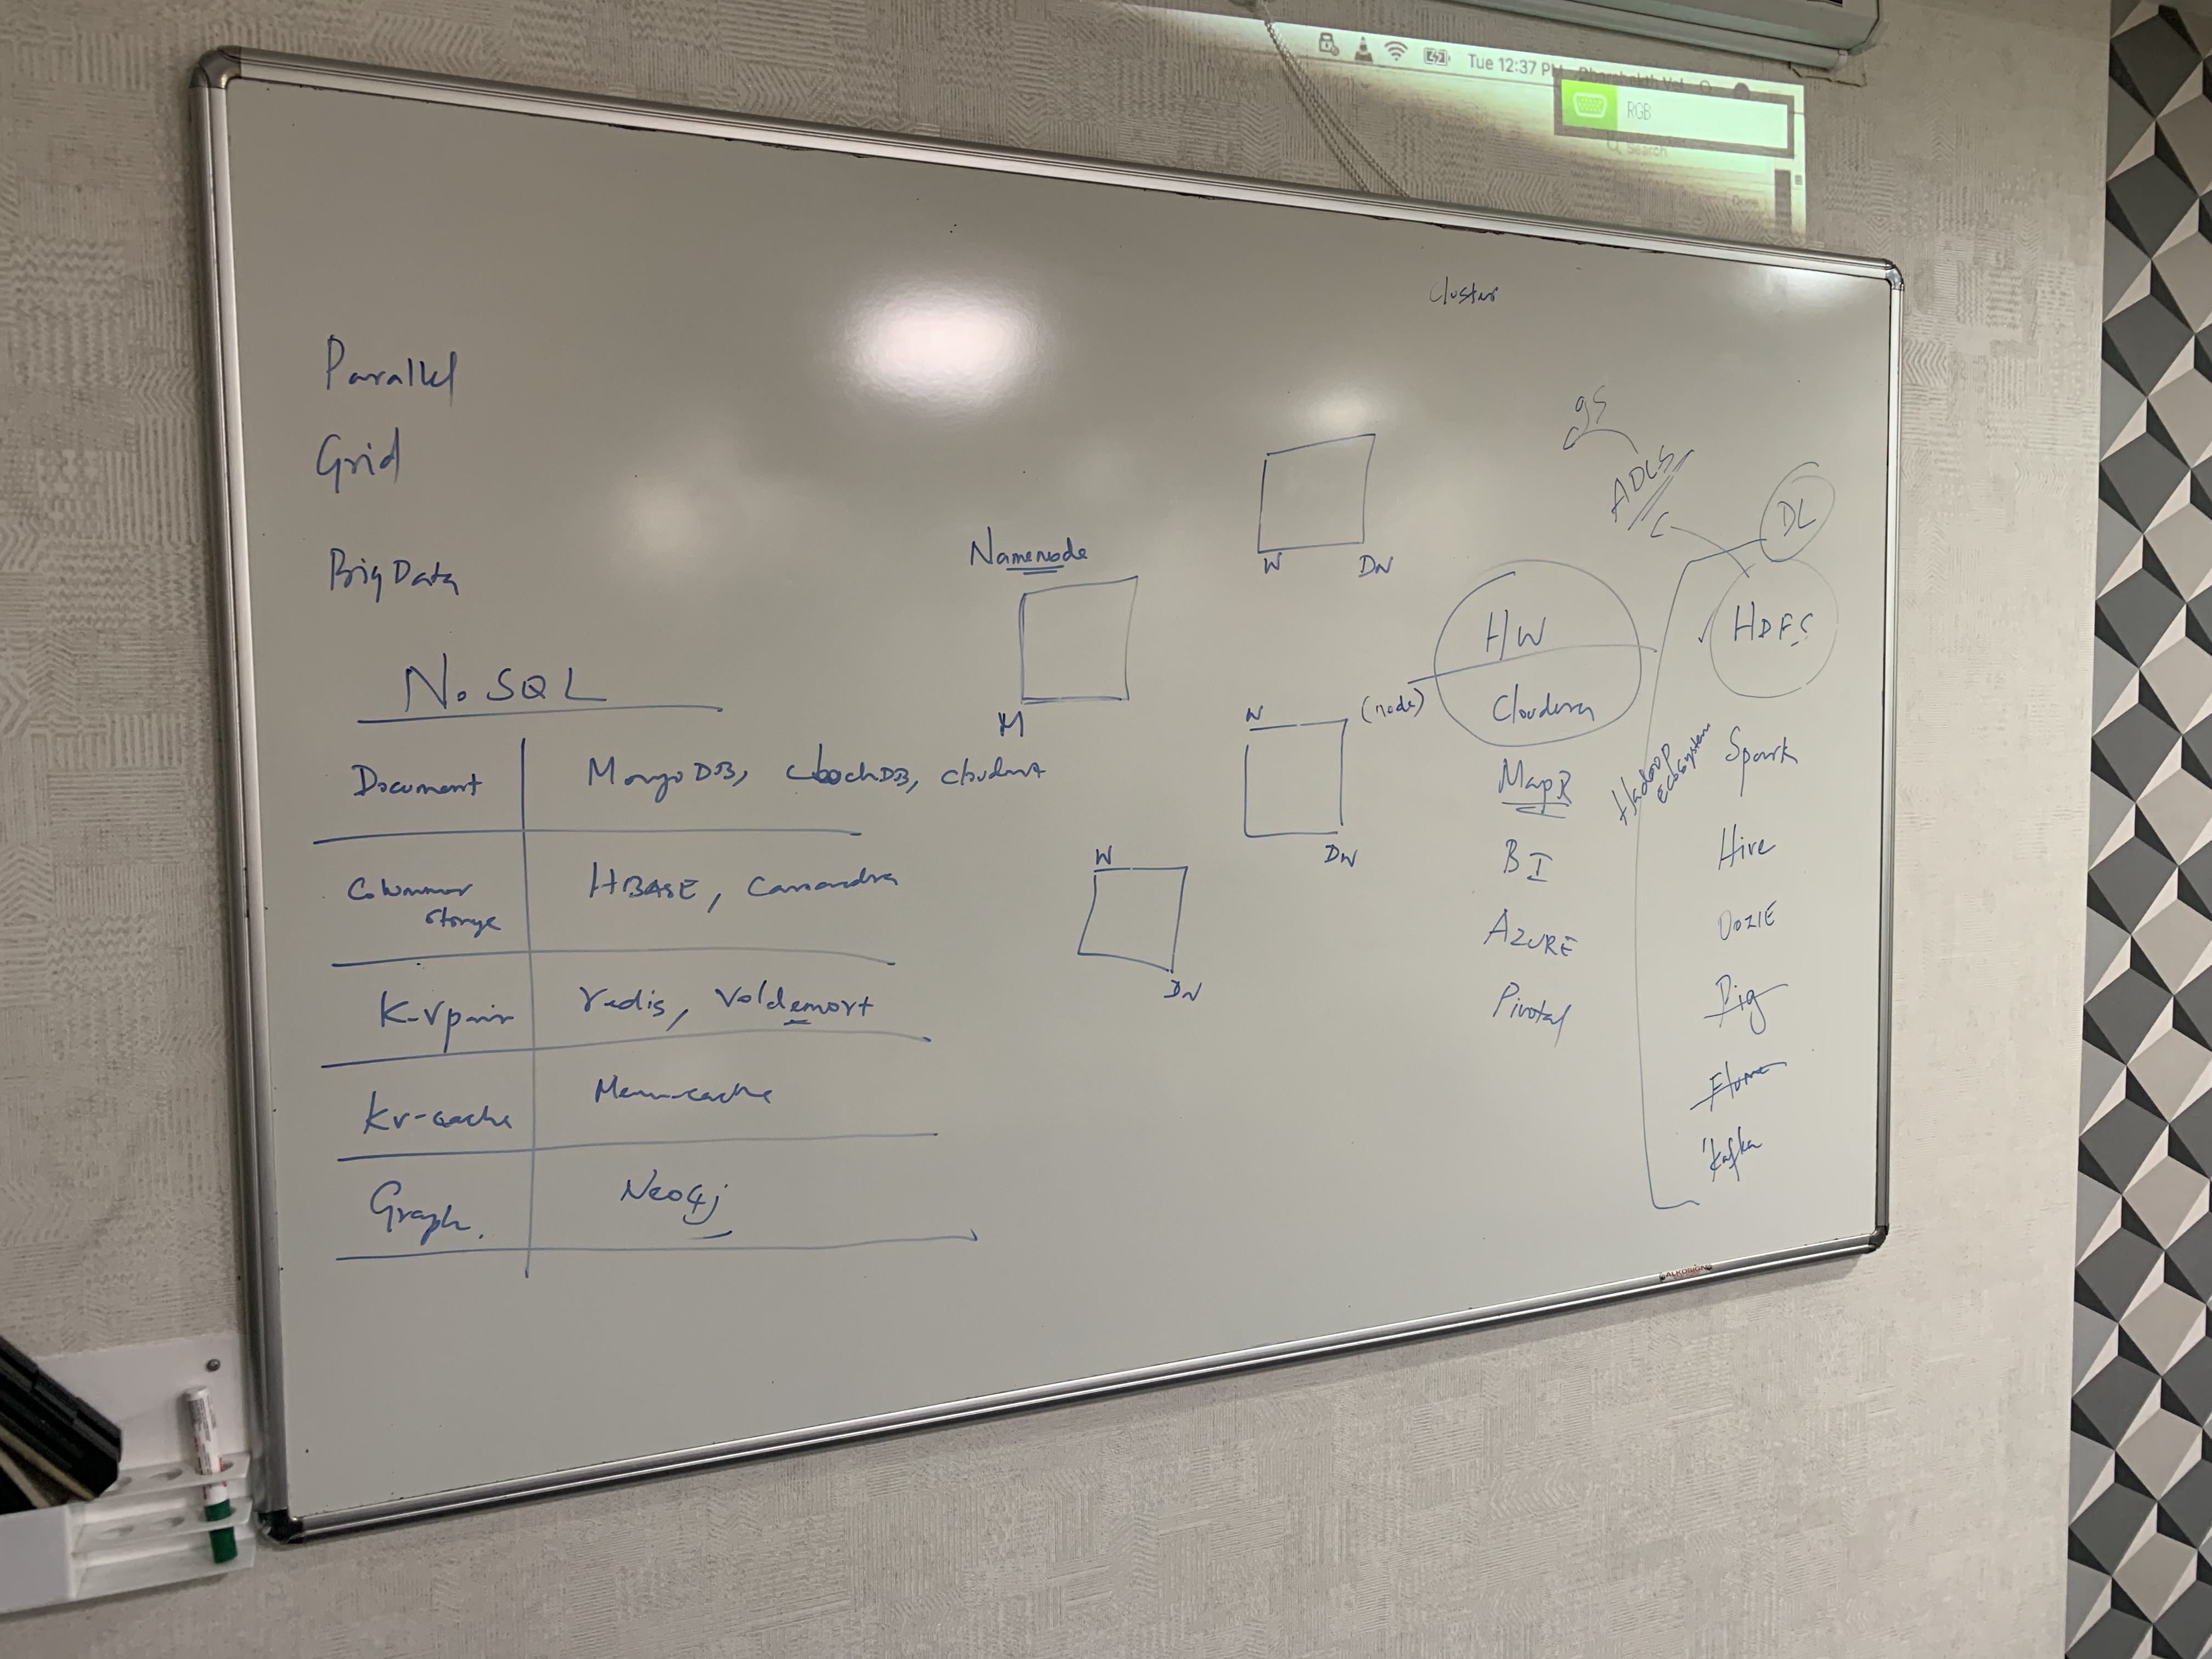 Tue 12:37 PM
RGB
Search
Cluster
Parallel
Grid
BigData
NoSQL
Document MongoDB, CouchDB, Cloudant
Columnar storage HBASE, Cassandra
K-V pair redis, Voldemort
KV-cache Mem-cache
Graph. Neo4j
Namenode
M
W DN
W (node)
DN
W
DN
gs
ADLS
DL
H/W
Cloudera
MapR
BI
AZURE
Pivotal
Hadoop
Ecosystem
HDFS
Spark
Hive
OOZIE
Pig
Flume
Kafka
ALKOSIGN